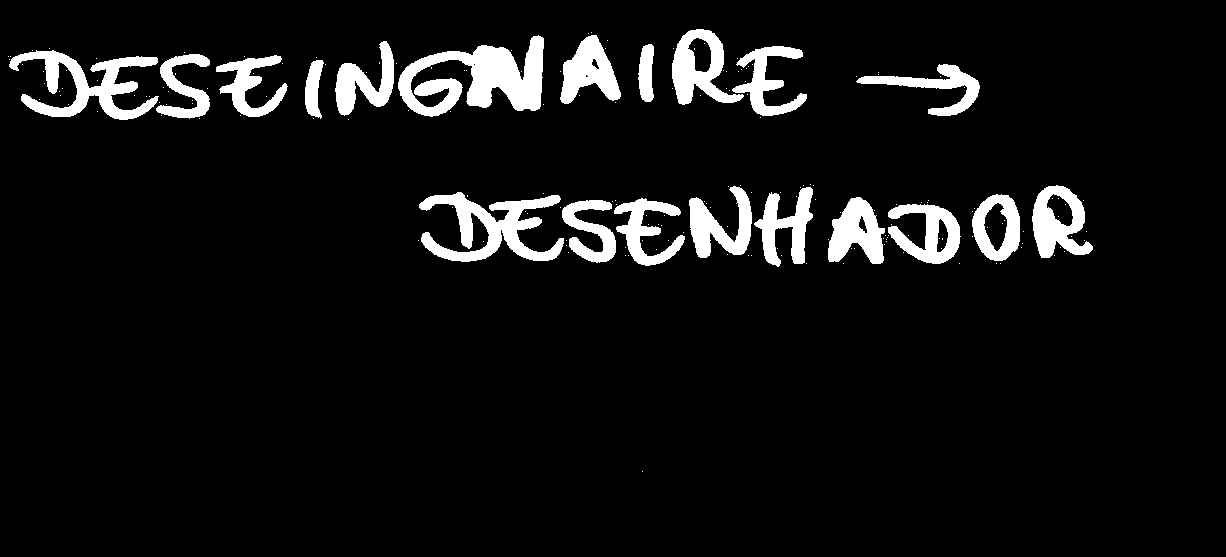 DESEINGNAIRE →
DESENHADOR